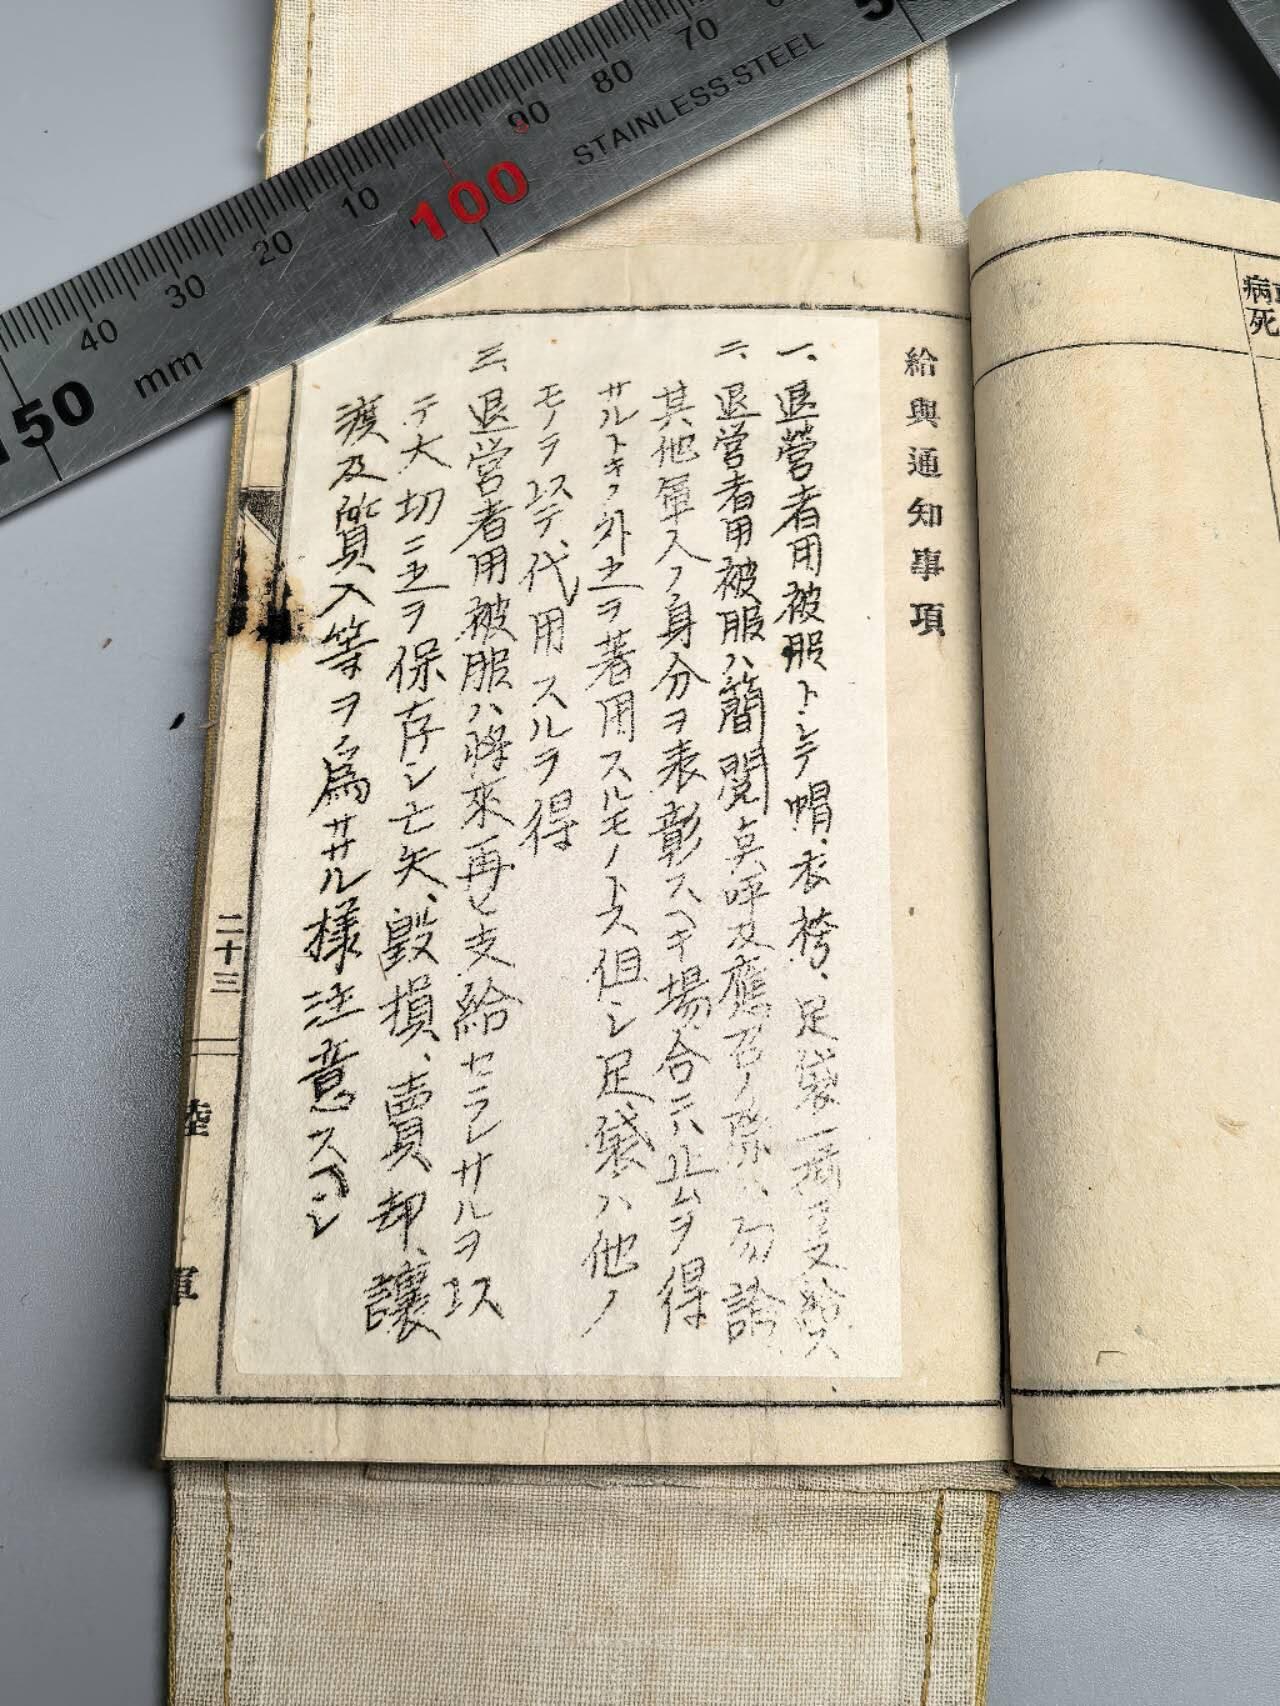 50
60
70
80
90
100
10
20
30
40
150 mm
STAINLESS STEEL
病死
給與通知事項
一、退營者用被服トシテ帽、衣袴、足袋一揃ヲ支給ス
二、退営者用被服ハ簡閲点呼及應召ノ際ハ勿論
其他軍人ノ身分ヲ表彰スヘキ場合ニハ止ムヲ得
サルトキノ外之ヲ著用スルモノトス但シ足袋ハ他ノ
モノヲ以テ代用スルヲ得
三、退営者用被服ハ将來再ヒ支給セラレサルヲ以
テ大切ニ之ヲ保存シ亡失、毀損、賣却、讓
渡及質入等ヲ為ササル様注意スヘシ
二十三
陸
軍